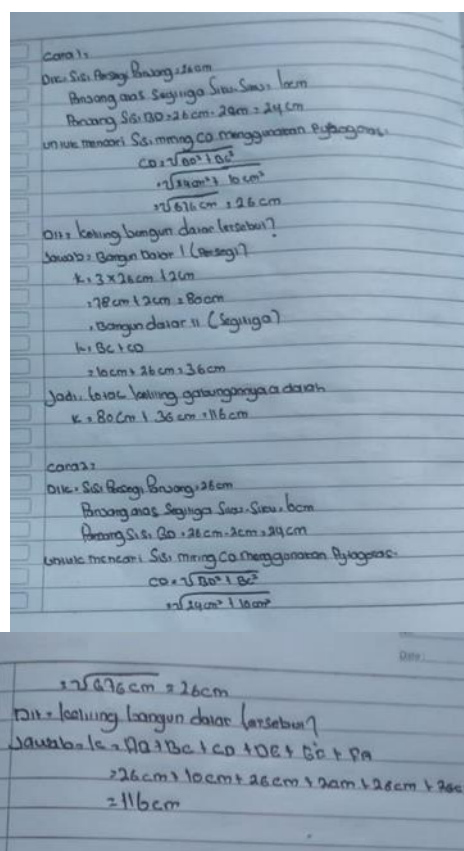 Cara 1:
Dik: Sisi Persegi Panjang = 26cm
Panjang alas Segitiga Siku-Siku = 10cm
Panjang Sisi BD = 26 cm - 2cm = 24 cm
Untuk mencari Sisi miring CD menggunakan Pythagoras.
CD = √BD² + BC²
= √24cm² + 10 cm²
= √676 cm = 26 cm
Dit = keliling bangun datar tersebut?
Jawab = Bangun Datar I (Persegi)
K = 3 x 26cm + 2cm
= 78 cm + 2cm = 80cm
• Bangun datar II (Segitiga)
K = BC + CD
= 10cm + 26 cm = 36cm
Jadi, total keliling gabungannya adalah
K = 80cm + 36 cm = 116 cm
Cara 2:
Dik = Sisi Persegi Panjang = 26cm
Panjang alas Segitiga Siku-Siku = 10cm
Panjang Sisi BD = 26 cm - 2cm = 24cm
Untuk mencari Sisi miring CD menggunakan Pythagoras.
CD = √BD² + BC²
= √24cm² + 10cm²
Date:
= √676 cm = 26cm
Dit = keliling bangun datar tersebut?
Jawab = K = AB + BC + CD + DE + EF + FA
= 26cm + 10cm + 26cm + 2cm + 26cm + 26c
= 116cm